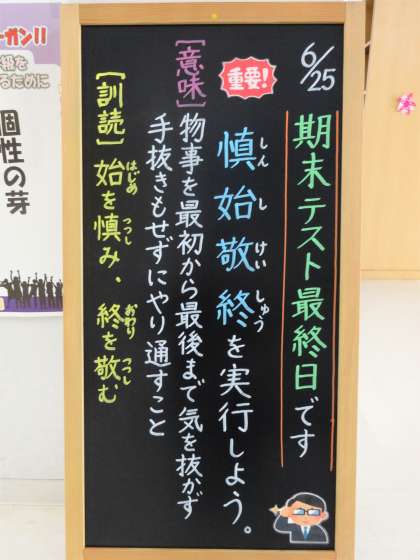 6/25
期末テスト最終日です
重要!
慎始敬終を実行しよう。
しん し けい しゅう
[意味]物事を最初から最後まで気を抜かず
手抜きもせずにやり通すこと
[訓読]始を慎み、終を敬む
はじめ つつし おわり つつし
ーガン!!
級を
るために
個性の芽